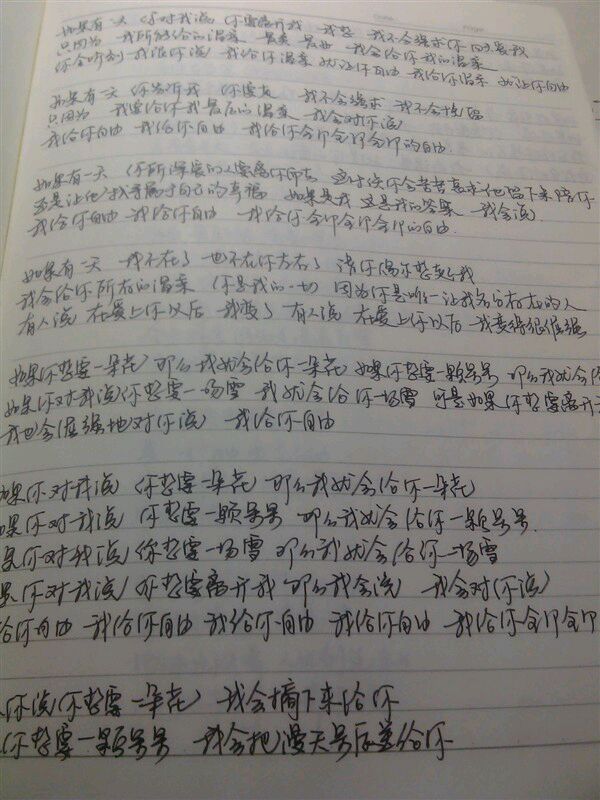 如果有一天 你对我说 你要离开我 我想 我不会强求你回到我
只因为 我所能给的温柔
你会听到我很
如果有一天 你告诉我 你要走 我不会强求 我不会挽留
只因为 我要给你我最后的温柔 我会对你说
我给你自由 我给你自由 我给你全部全部全部的自由.
如果有一天 你所深爱的人要离你而去 这时候你会苦苦哀求他留下来陪你
还是让他找寻属于自己的幸福 如果是我 这是我的答案 我会说
我给你自由 我给你自由 我给你全部全部全部的自由.
如果有一天 我不在了 也不在你左右了 请你偶尔想起我
我会给你所有的温柔 你是我的一切 因为你是唯一让我
有人说 在爱上你以后 我变了 有人说 在爱上你以后 我变得很倔强
如果你想要一朵花 那么我就会给你一朵花 如果你想要一颗星星 那么我就会给
如果你对我说你想要一场雪 我就会给你一场雪 可是如果你想要离开
我也会倔强地对你说 我给你自由
如果你对我说 你想要一朵花 那么我就会给你一朵花
果你对我说 你想要一颗星星 那么我就会给你一颗星星.
果你对我说 你想要一场雪 那么我就会给你一场雪
果你对我说 你想要离开我 那么我会说 我会对你说
给你自由 我给你自由 我给你自由 我给你自由 我给你全部全部
你说你想要一朵花 我会摘下来给你
你想要一颗星星 我会把漫天星辰送给你